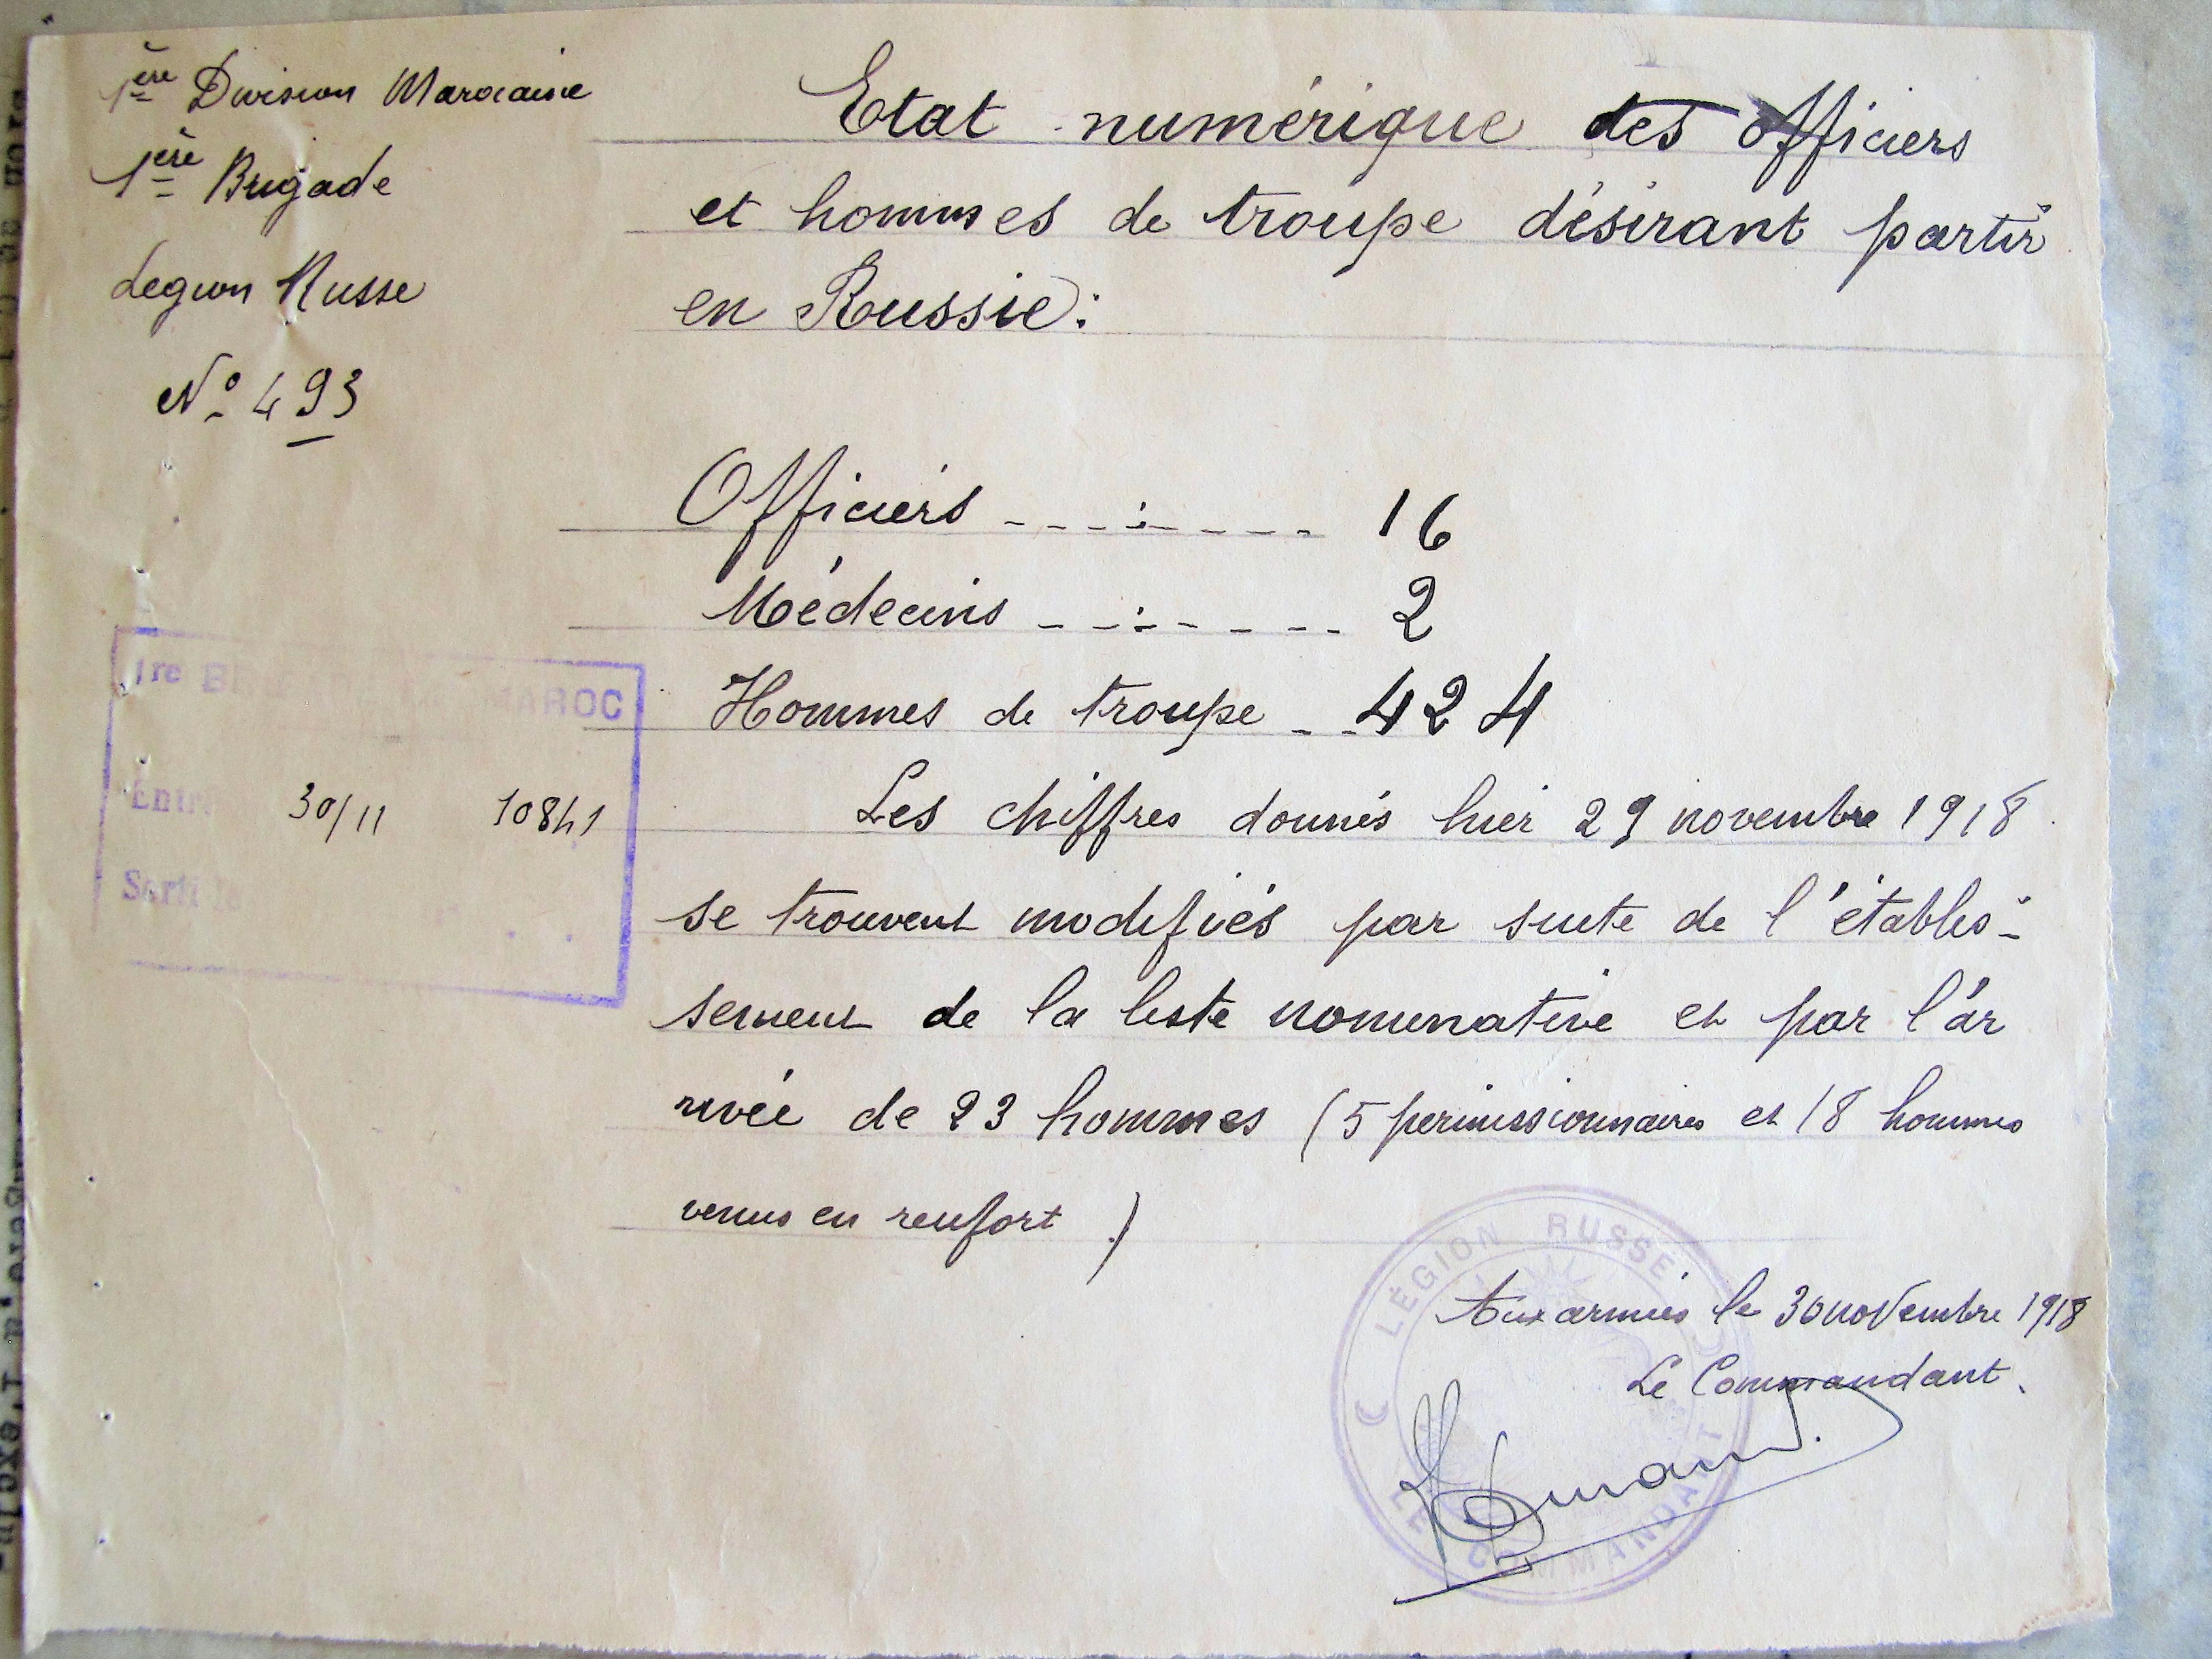 1ère Division Marocaine
1ère Brigade
Legion Russe
N° 493
Etat numérique des Officiers
et hommes de troupe désirant partir
en Russie:
Officiers ---:---- 16
Médecins --:---- 2
Hommes de troupe -- 424
Les chiffres donnés hier 29 novembre 1918
se trouvent modifiés par suite de l'établis-
sement de la liste nominative et par l'ar
rivée de 23 hommes (5 permissionnaires et 18 hommes
venus en renfort)
1re MAROC
Entré 30/11 10841
Sorti le
LÉGION RUSSE
Aux armées le 30 novembre 1918
Le Commandant.
LE COMMANDANT